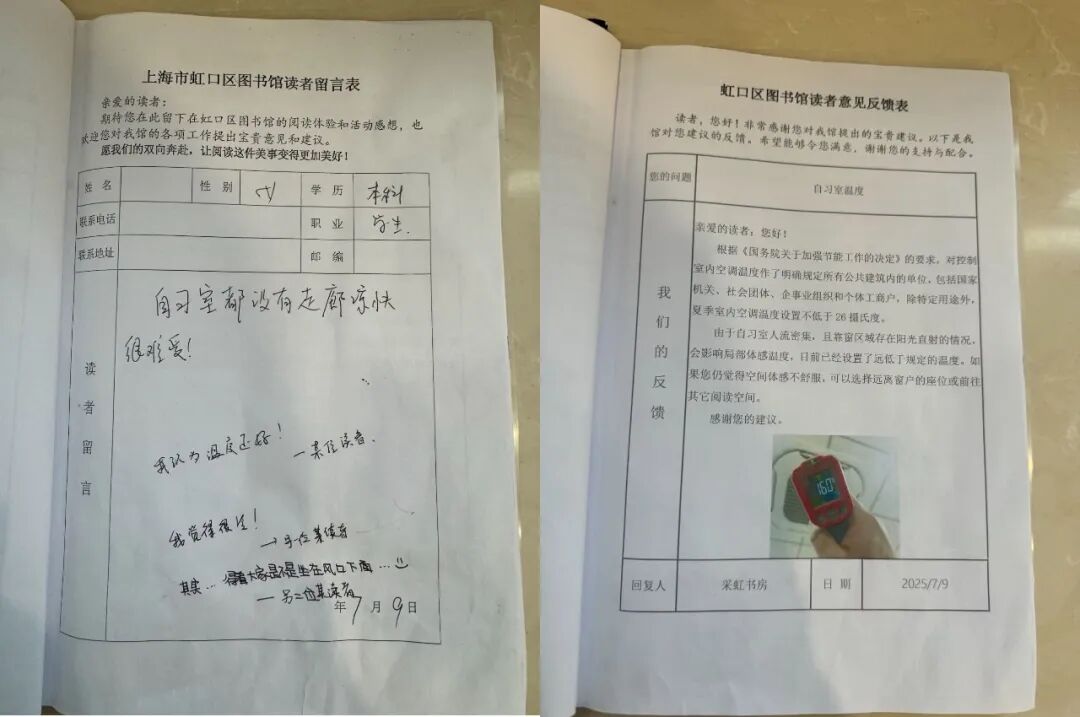 上海市虹口区图书馆读者留言表
亲爱的读者：
期待您在此留下在虹口区图书馆的阅读体验和活动感想，也
欢迎您对我馆的各项工作提出宝贵意见和建议。
愿我们的双向奔赴，让阅读这件美事变得更加美好！
姓 名 性 别 女 学 历 本科
联系电话 职 业 学生.
联系地址 邮 编
读者留言
自习室都没有走廊凉快
很难受！
我认为温度还好！
—某位读者.
我觉得很冷！
→另一位某读者
其实… 得看大家是不是坐在风口下面…
—另二位某读者
年7月9日
虹口区图书馆读者意见反馈表
读者，您好！非常感谢您对我馆提出的宝贵建议。以下是我
馆对您建议的反馈。希望能够令您满意，谢谢您的支持与配合。
您的问题 自习室温度
我们的反馈
亲爱的读者：您好！
根据《国务院关于加强节能工作的决定》的要求，对控制
室内空调温度作了明确规定所有公共建筑内的单位，包括国家
机关、社会团体、企事业组织和个体工商户，除特定用途外，
夏季室内空调温度设置不低于 26 摄氏度。
由于自习室人流密集，且靠窗区域存在阳光直射的情况，
会影响局部体感温度，目前已经设置了远低于规定的温度。如
果您仍觉得空间体感不舒服，可以选择远离窗户的座位或前往
其它阅读空间。
感谢您的建议。
16.0
回复人 采虹书房 日 期 2025/7/9